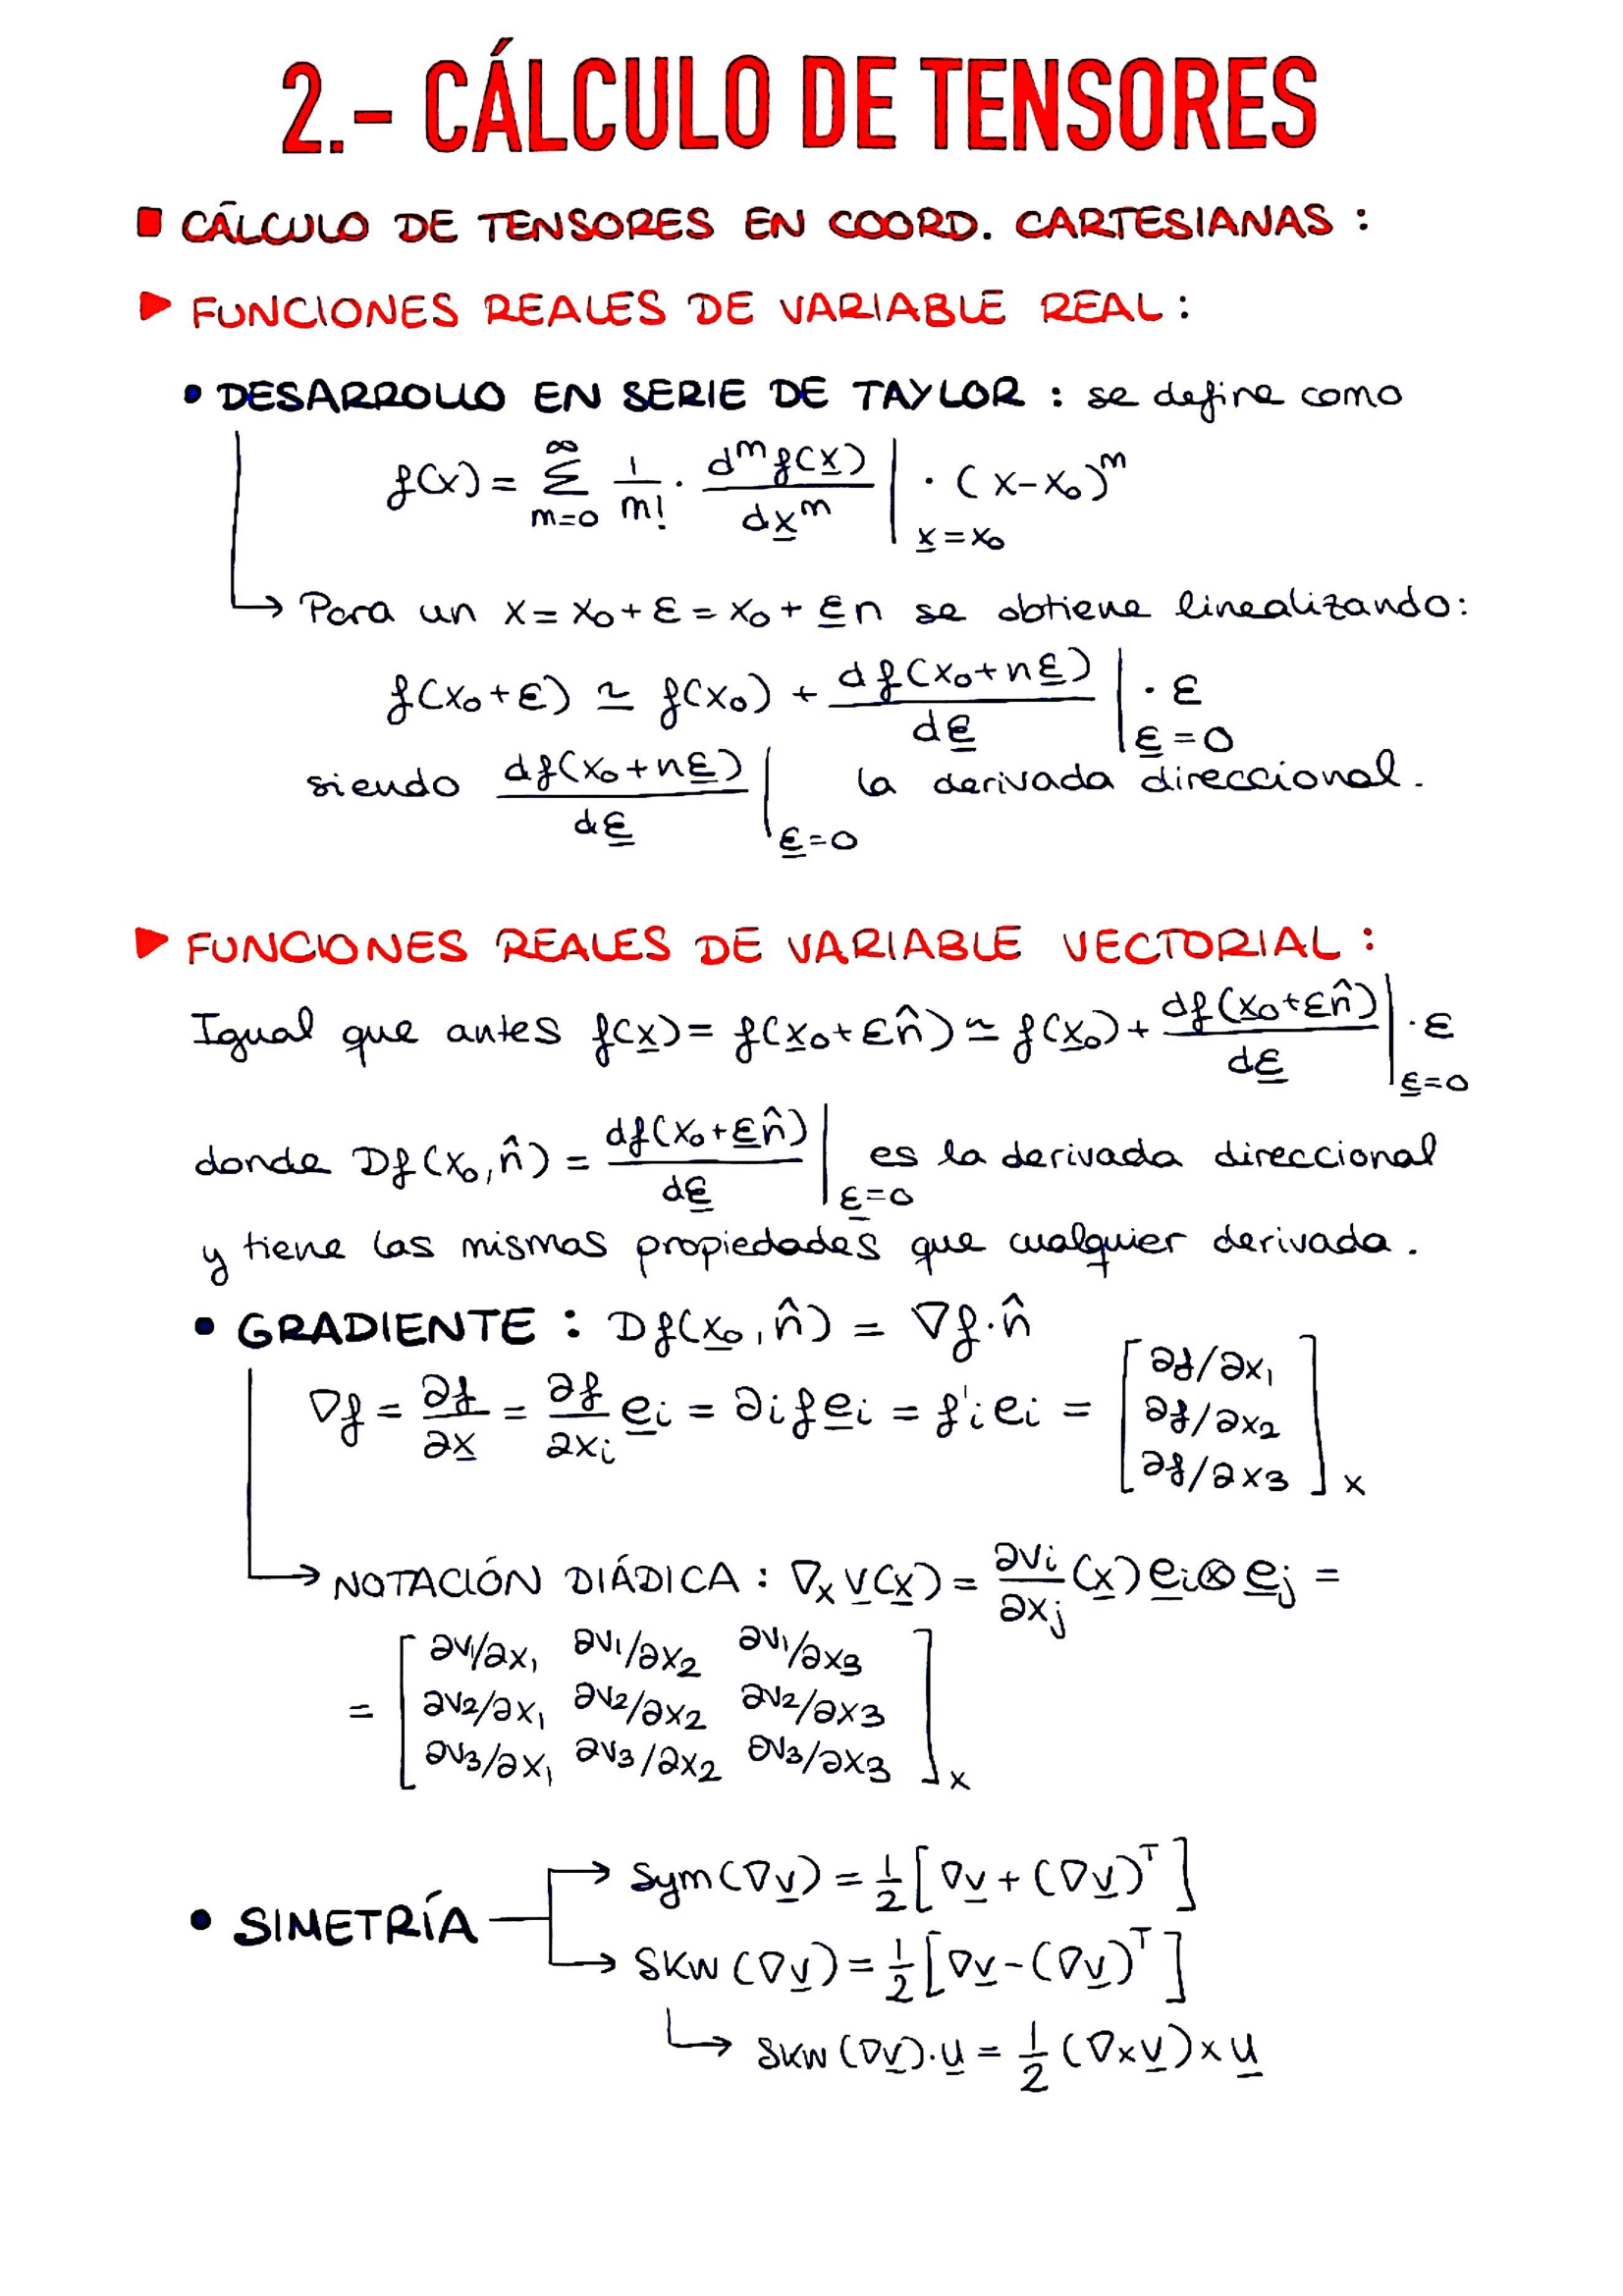 2.- CÁLCULO DE TENSORES
CÁLCULO DE TENSORES EN COORD. CARTESIANAS :
FUNCIONES REALES DE VARIABLE REAL :
• DESARROLLO EN SERIE DE TAYLOR : se define como
f(x) = ∑_{m=0}^{∞} 1/m! · d^m f(x̲)/dx̲^m |_{x̲=x₀} · (x-x₀)^m
Para un x = x₀ + ε = x₀ + ε̲n se obtiene linealizando:
f(x₀+ε) ≃ f(x₀) + df(x₀+nε̲)/dε̲ |_{ε̲=0} · ε
siendo df(x₀+nε̲)/dε̲ |_{ε̲=0} la derivada direccional.
FUNCIONES REALES DE VARIABLE VECTORIAL :
Igual que antes f(x̲) = f(x̲₀+εn̂) ≃ f(x̲₀) + df(x̲₀+εn̂)/dε̲ |_{ε̲=0} · ε
donde Df(x₀,n̂) = df(x₀+ε̲n̂)/dε̲ |_{ε̲=0} es la derivada direccional
y tiene las mismas propiedades que cualquier derivada.
• GRADIENTE : Df(x̲₀,n̂) = ∇f·n̂
∇f = ∂f/∂x̲ = ∂f/∂xᵢ e̲ᵢ = ∂ᵢf e̲ᵢ = f'ᵢ eᵢ = [∂f/∂x₁ ∂f/∂x₂ ∂f/∂x₃]_x
NOTACIÓN DIÁDICA : ∇ₓ v̲(x̲) = ∂vᵢ/∂xⱼ (x̲) e̲ᵢ⊗e̲ⱼ =
= [∂v₁/∂x₁ ∂v₁/∂x₂ ∂v₁/∂x₃
∂v₂/∂x₁ ∂v₂/∂x₂ ∂v₂/∂x₃
∂v₃/∂x₁ ∂v₃/∂x₂ ∂v₃/∂x₃]_x
• SIMETRÍA
Sym(∇v̲) = 1/2 [∇v̲ + (∇v̲)ᵀ]
SKW(∇v̲) = 1/2 [∇v̲ - (∇v̲)ᵀ]
SKW(∇v̲)·u̲ = 1/2 (∇×v̲)×u̲